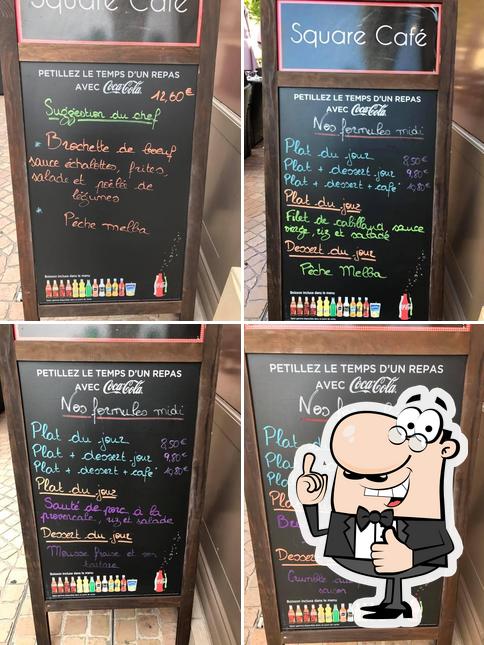 Square Café
PETILLEZ LE TEMPS D'UN REPAS
AVEC Coca-Cola.
12,60€
Suggestion du chef
* Brochette de boeuf
sauce échalottes, frites,
salade et poêlé de
légumes
*
Pêche melba
Boisson incluse dans le menu
Square Café
PETILLEZ LE TEMPS D'UN REPAS
AVEC Coca-Cola.
Nos formules midi
Plat du jour 8,50€
Plat + dessert jour 9,80€
Plat + dessert + café 10,80€
Plat du jour
Filet de cabillaud, sauce
vierge, riz et salade
Dessert du jour
Pêche Melba
Boisson incluse dans le menu
PETILLEZ LE TEMPS D'UN REPAS
AVEC Coca-Cola.
Nos formules midi
Plat du jour 8,50€
Plat + dessert jour 9,80€
Plat + dessert + café 10,80€
Plat du jour
Sauté de porc à la
provencale, riz et salade
Dessert du jour
Mousse fraise et son
tartare
Boisson incluse dans le menu
PETILLEZ LE TEMPS D'UN REPAS
AVEC Coca-Cola.
Nos
Plat
Pla
Pla
Pla
Dessert
Crumble
saison
Boisson incluse dans le menu